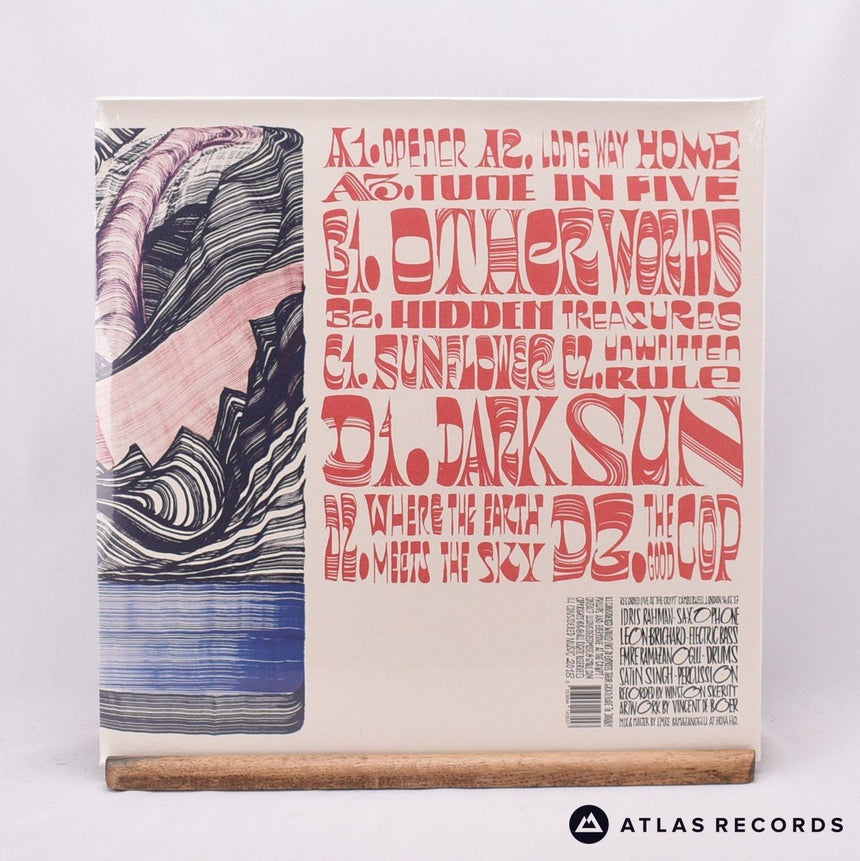 A1. OPENER A2. LONG WAY HOME
A3. TUNE IN FIVE
B1. OTHER WORLDS
B2. HIDDEN TREASURES
C1. SUNFLOWER C2. UNWRITTEN RULE
D1. DARK SUN
D2. WHERE THE EARTH MEETS THE SKY D3. THE GOOD COP
RECORDED LIVE AT THE CRYPT CAMBERWELL, LONDON
IDRIS RAHMAN - SAXOPHONE
LEON BRICHARD - ELECTRIC BASS
EMRE RAMAZANOGLU - DRUMS
SATIN SINGH - PERCUSSION
RECORDED BY WINSTON SKERITT
ARTWORK BY VINCENT DE BOER
MIX & MASTER BY EMRE RAMAZANOGLU AT HOXA HQ.
ILL CONSIDERED MUSIC 2018
ATLAS RECORDS